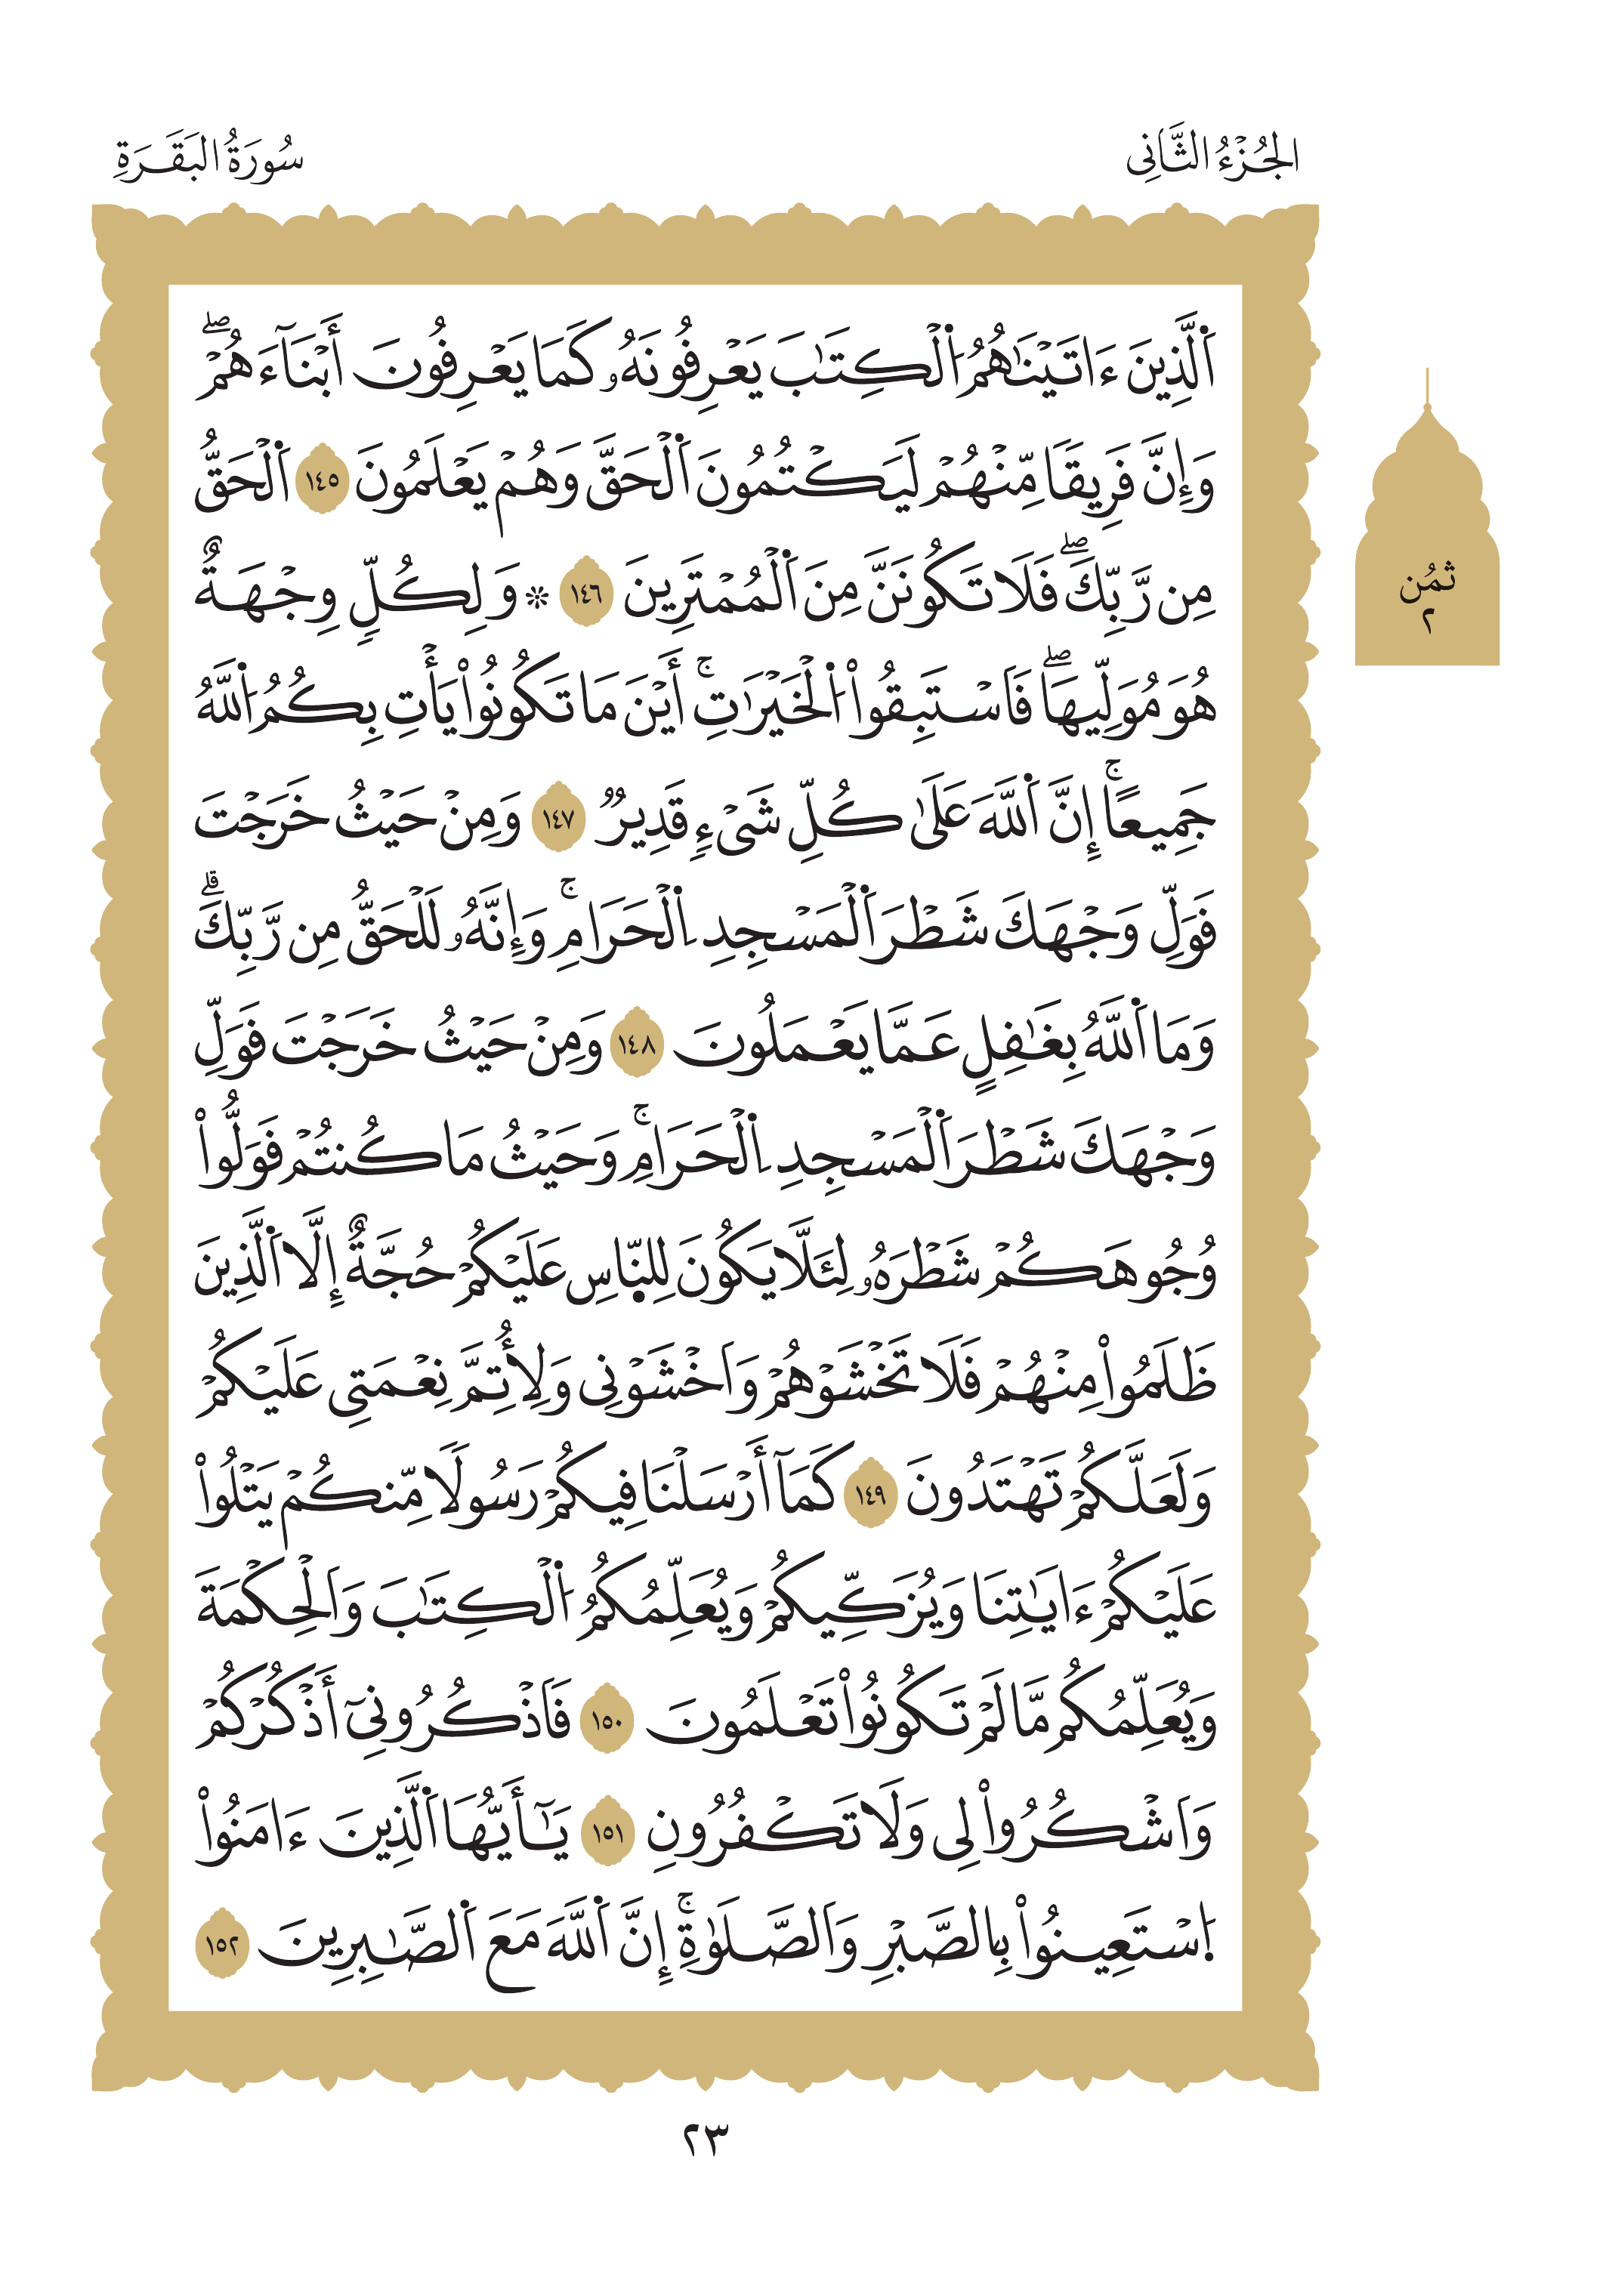 الجُزْءُ الثَّانِى
سُورَةُ البَقَرَةِ
اَ۬لَّذِينَ ءَاتَيْنَٰهُمُ اُ۬لْكِتَٰبَ يَعْرِفُونَهُۥ كَمَا يَعْرِفُونَ أَبْنَآءَهُمْۖ
وَإِنَّ فَرِيقًا مِّنْهُمْ لَيَكْتُمُونَ اَ۬لْحَقَّ وَهُمْ يَعْلَمُونَ ١٤٥ اَ۬لْحَقُّ
مِن رَّبِّكَۖ فَلَا تَكُونَنَّ مِنَ اَ۬لْمُمْتَرِينَ ١٤٦ ۞ وَلِكُلٍّ وِجْهَةٌ
هُوَ مُوَلِّيهَاۖ فَاَسْتَبِقُواْ اُ۬لْخَيْرَٰتِۚ أَيْنَ مَا تَكُونُواْ يَأْتِ بِكُمُ اُ۬للَّهُ
جَمِيعًاۚ إِنَّ اَ۬للَّهَ عَلَىٰ كُلِّ شَىْءٍ قَدِيرٌ ١٤٧ وَمِنْ حَيْثُ خَرَجْتَ
فَوَلِّ وَجْهَكَ شَطْرَ اَ۬لْمَسْجِدِ اِ۬لْحَرَامِۚ وَإِنَّهُۥ لَلْحَقُّ مِن رَّبِّكَۗ
وَمَا اَ۬للَّهُ بِغَٰفِلٍ عَمَّا يَعْمَلُونَ ١٤٨ وَمِنْ حَيْثُ خَرَجْتَ فَوَلِّ
وَجْهَكَ شَطْرَ اَ۬لْمَسْجِدِ اِ۬لْحَرَامِۚ وَحَيْثُ مَا كُنتُمْ فَوَلُّواْ
وُجُوهَكُمْ شَطْرَهُۥ لِئَلَّا يَكُونَ لِلنَّاسِ عَلَيْكُمْ حُجَّةٌ إِلَّا اَ۬لَّذِينَ
ظَلَمُواْ مِنْهُمْ فَلَا تَخْشَوْهُمْ وَاَخْشَوْنِى وَلِأُتِمَّ نِعْمَتِى عَلَيْكُمْ
وَلَعَلَّكُمْ تَهْتَدُونَ ١٤٩ كَمَآ أَرْسَلْنَا فِيكُمْ رَسُولًا مِّنكُمْ يَتْلُواْ
عَلَيْكُمْ ءَايَٰتِنَا وَيُزَكِّيكُمْ وَيُعَلِّمُكُمُ اُ۬لْكِتَٰبَ وَاَلْحِكْمَةَ
وَيُعَلِّمُكُم مَّا لَمْ تَكُونُواْ تَعْلَمُونَ ١٥٠ فَاَذْكُرُونِىٓ أَذْكُرْكُمْ
وَاَشْكُرُواْ لِى وَلَا تَكْفُرُونِ ١٥١ يَٰٓأَيُّهَا اَ۬لَّذِينَ ءَامَنُواْ
اُ۪سْتَعِينُواْ بِالصَّبْرِ وَاَلصَّلَوٰةِۚ إِنَّ اَ۬للَّهَ مَعَ اَ۬لصَّٰبِرِينَ ١٥٢
ثُمُن
٢
٢٣